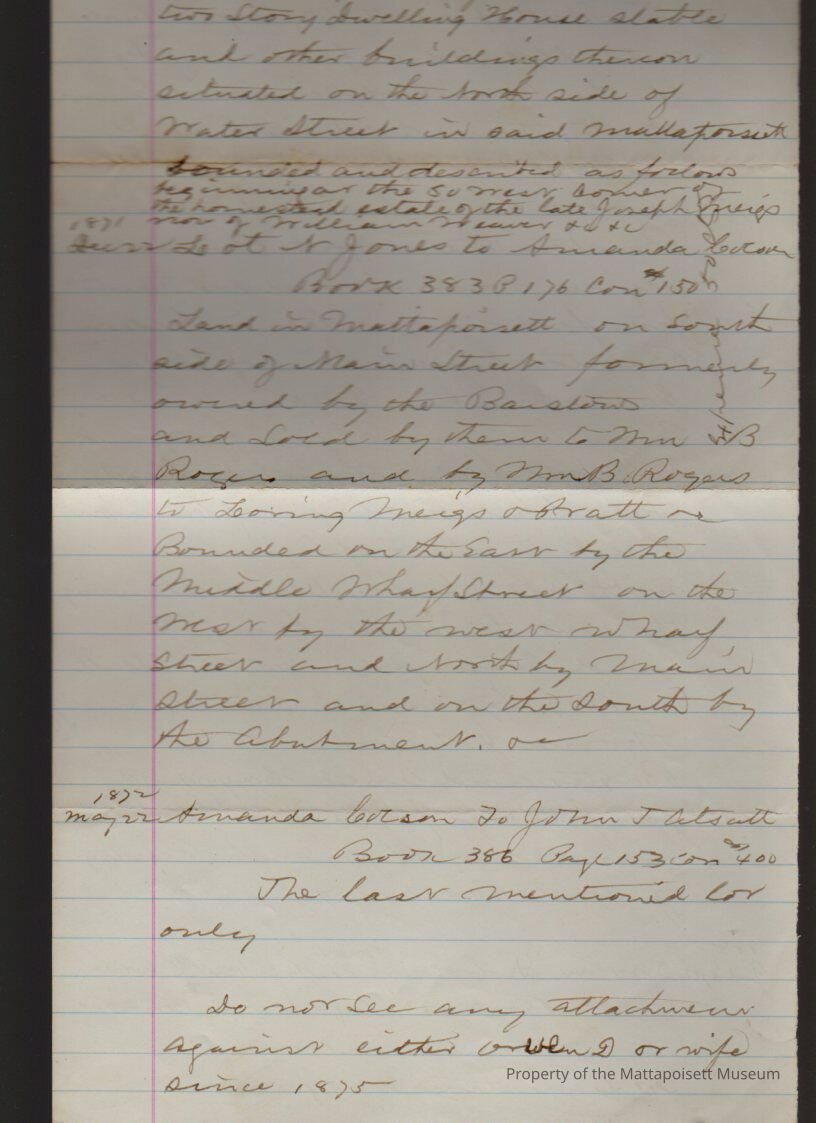 two Story Dwelling House stable
and other buildings thereon
situated on the North side of
Water Street in said Mattapoisett
bounded and described as follows
beginning at the So West Corner of
the homestead estate of the late Joseph Meigs
now of William Weaver &c &c
1871
N Jones to Amanda Cotson
Book 383 P 176 Con $150
Land in Mattapoisett on South
side of Main Street formerly
owned by the Barstows
and Sold by them to Wm B
Rogers and by Wm B. Rogers
to Loring Meigs & Pratt &c
Bounded on the East by the
Middle Wharf Street on the
West by the west Wharf
Street and North by Main
Street and on the South by
the Abutment. &c
1872
May 22 Amanda Cotson To John T Atsatt
Book 386 Page 153 Con $400
The last mentioned lot
only
Do not See any attachment
against either D or wife
since 1875
Property of the Mattapoisett Museum